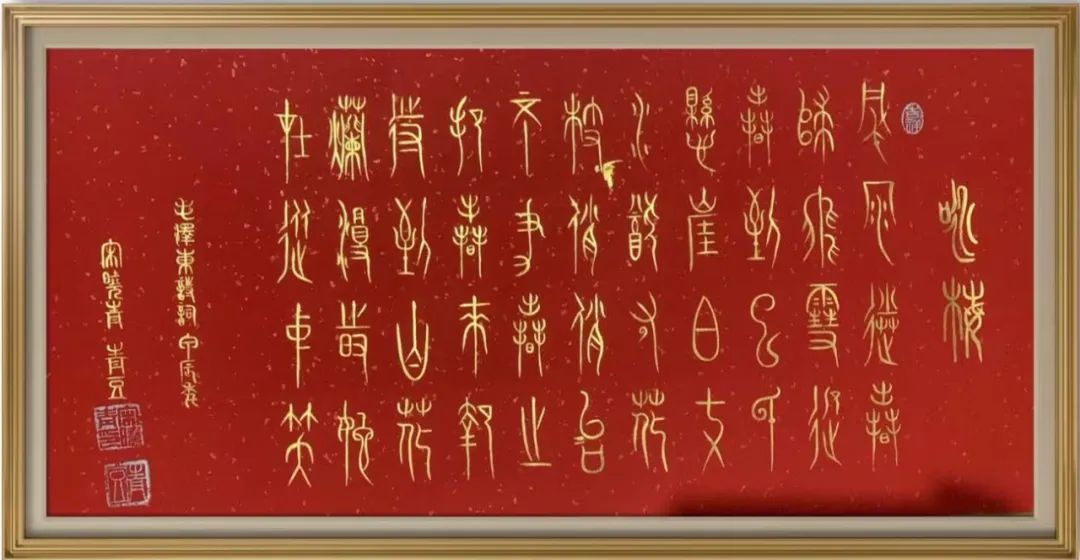 咏梅
風雨送春
歸飛雪迎
春到已是
懸崖百丈
冰猶有花
枝俏俏也
不爭春只
把春來報
待到山花
爛漫時她
在叢中笑
毛澤東詩詞 甲辰春
宋曉青 青豆
青豆